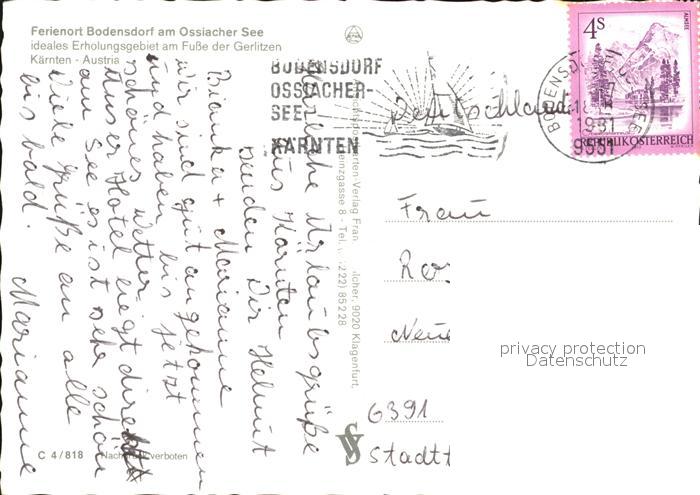 Ferienort Bodensdorf am Ossiacher See
ideales Erholungsgebiet am Fuße der Gerlitzen
Kärnten - Austria
BODENSDORF
OSSIACHER-
SEE
KÄRNTEN
4S
ALMSEE
REPUBLIK ÖSTERREICH
BODENSDORF
SEE
1981
9551
Deutschland
Herzliche Urlaubsgrüße
aus Kärnten
senden Dir Helmut
Bianka + Marianne
wir sind gut angekommen
und haben bis jetzt
schönes Wetter.
Unser Hotel liegt direkt
am See es ist sehr schön
Viele Grüße an alle
bis bald. Marianne
Frau
Ros
Neue
6391
Stadtt
privacy protection
Datenschutz
-Verlag Fran
lcher, 9020 Klagenfurt,
nzgasse 8 - Tel.
222) 85228
C 4/818 Nachdruck verboten